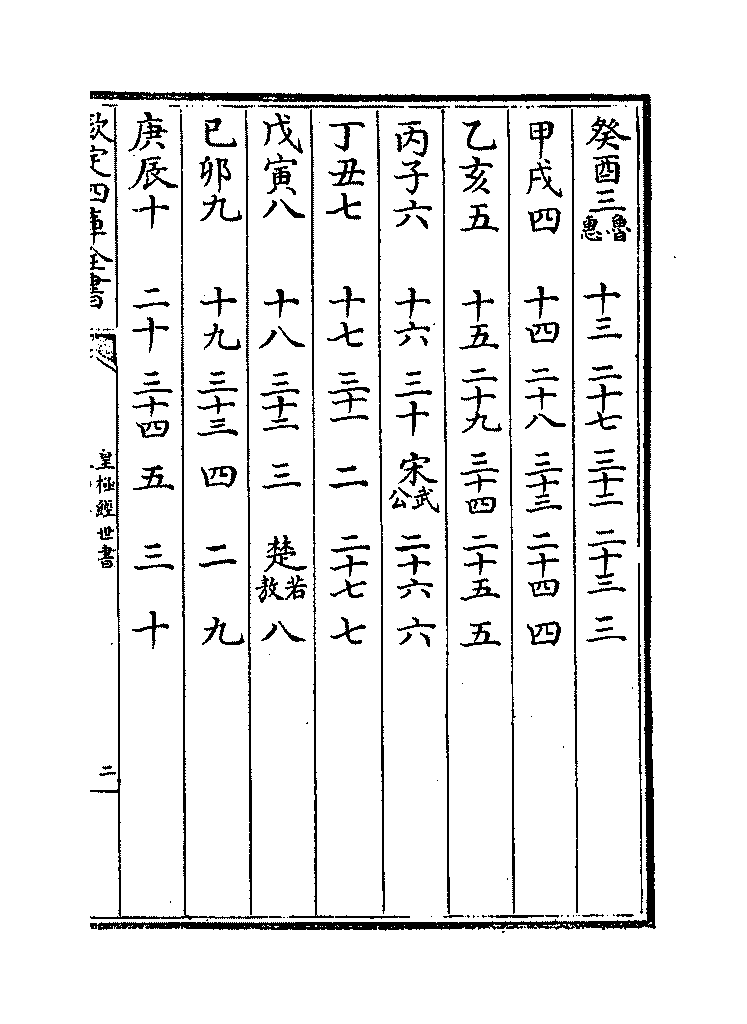 癸酉三魯惠 十三 二十七 三十二 二十三 三
甲戌四 十四 二十八 三十三 二十四 四
乙亥五 十五 二十九 三十四 二十五 五
丙子六 十六 三十 宋武公 二十六 六
丁丑七 十七 三十一 二 二十七 七
戊寅八 十八 三十二 三 楚若敖 八
己卯九 十九 三十三 四 二 九
庚辰十 二十 三十四 五 三 十
欽定四庫全書
皇極經世書
二